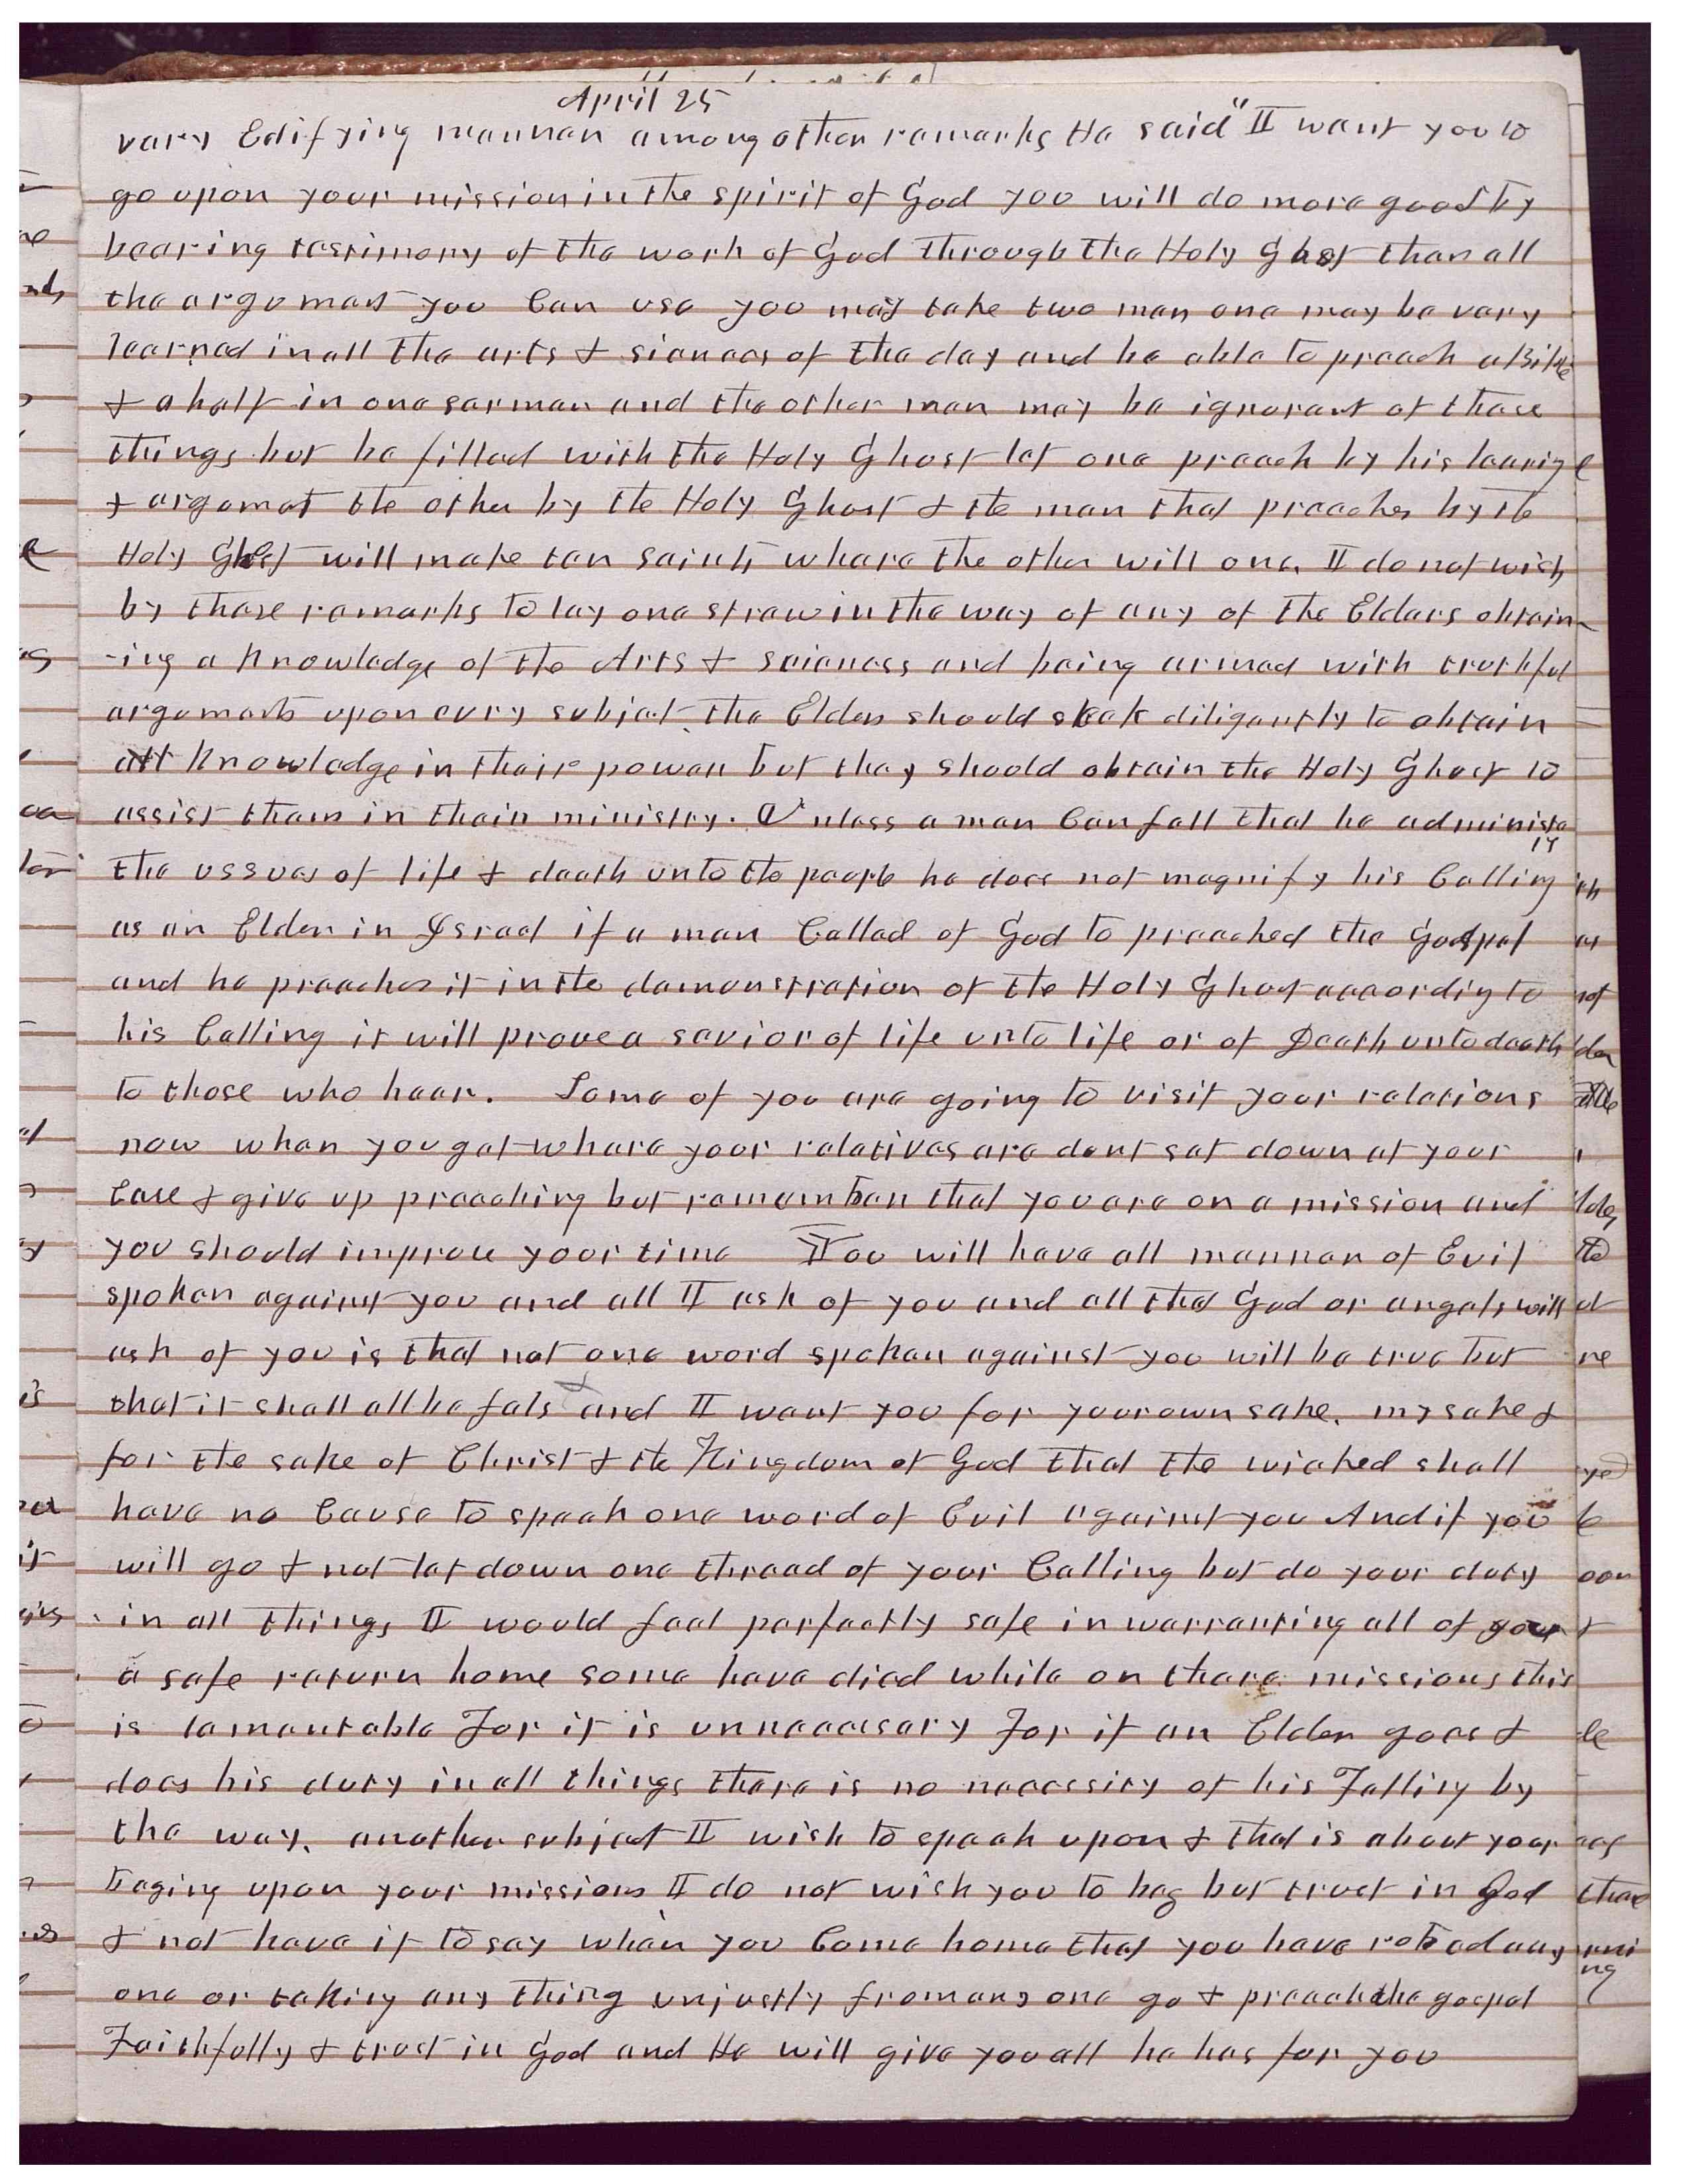 April 25
very Edifying mannor among other remarks He said "I want you to
go upon your mission in the spirit of God you will do more good by
bearing testimony of the work of God through the Holy Ghost than all
the argument you Can use you may take two men one may be very
learned in all the arts & siences of the day and be able to preach a Bible
& a half in one sermon and the other man may be ignorant of these
things but be filled with the Holy Ghost let one preach by his learnig
& argumet the other by the Holy Ghost & the man that preaches by the
Holy Ghost will make ten saints where the other will one, I do not wish
by these remarks to lay one straw in the way of any of the Elders obtain-
-ing a knowledge of the Arts & sciences and being armed with truthful
arguments upon evry subject the Elders should seek diligently to obtain
all knowledge in their power but they should obtain the Holy Ghost to
assist them in their ministry. Unless a man Can fell that he administe
the ussues of life & death unto the people he does not magnify his Calling
as an Elder in Israel if a man Called of God to preached the Gospel
and he preaches it in the demonstration of the Holy Ghost accordig to
his Calling it will prove a savior of life unto life or of Death unto death
to those who hear. Some of you are going to visit your relations
now when you get where your relatives are dont set down at your
Ease & give up preaching but remember that you are on a mission and
you should improve your time You will have all manner of Evil
spoken against you and all I ask of you and all that God or angels will
ask of you is that not one word spoken against you will be true but
that it shall all be fals & and I want you for your own sake, my sake &
for the sake of Christ & the Kingdom of God that the wicked shall
have no Cause to speak one word of Evil against you And if you
will go & not let down one thread of your Calling but do your duty
in all things I would feel perfectly safe in warranting all of your
a safe return home some have died while on there missions this
is lamentable For it is unnecessary For if an Elder goes &
does his duty in all things there is no necessity of his Falling by
the way, another subject I wish to speak upon & that is about your
beging upon your missions I do not wish you to beg but trust in God
& not have it to say when you Come home that you have robed any
one or takig any thing unjustly from any one go & preach the gospel
Faithfully & trust in God and He will give you all he has for you